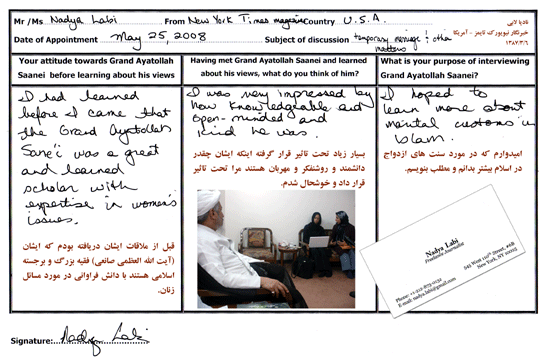 Mr /Ms Nadya Labi From New York Times magazine Country U.S.A.
Date of Appointment May 25, 2008 Subject of discussion temporary marriage & other matters
نادیا لابی
خبرنگار نیویورک تایمز - آمریکا
۱۳۸۷/۳/۶
Your attitude towards Grand Ayatollah
Saanei before learning about his views
I had learned
before I came that
the Grand Ayatollah
Sane'i was a great
and learned
scholar with
expertise in women's
issues.
قبل از ملاقات ایشان دریافته بودم که ایشان
(آیت الله العظمی صانعی) فقیه بزرگ و برجسته
اسلامی هستند با دانش فراوانی در مورد مسائل
زنان.
Having met Grand Ayatollah Saanei and learned
about his views, what do you think of him?
I was very impressed by
how knowledgeable and
open-minded and
kind he was.
بسیار زیاد تحت تاثیر قرار گرفته اینکه ایشان چقدر
دانشمند و روشنفکر و مهربان هستند مرا تحت تاثیر
قرار داد و خوشحال شدم.
What is your purpose of interviewing
Grand Ayatollah Saanei?
I hoped to
learn more about
marital customs in
Islam.
امیدوارم که در مورد سنت های ازدواج
در اسلام بیشتر بدانم و مطلب بنویسم.
Nadya Labi
Freelance Journalist
New York, NY 10025
Signature: Nadya Labi